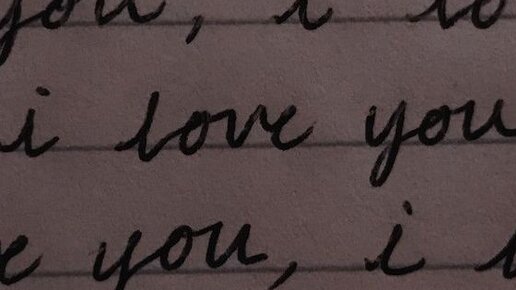 you, i lo
i love you
e you, i l